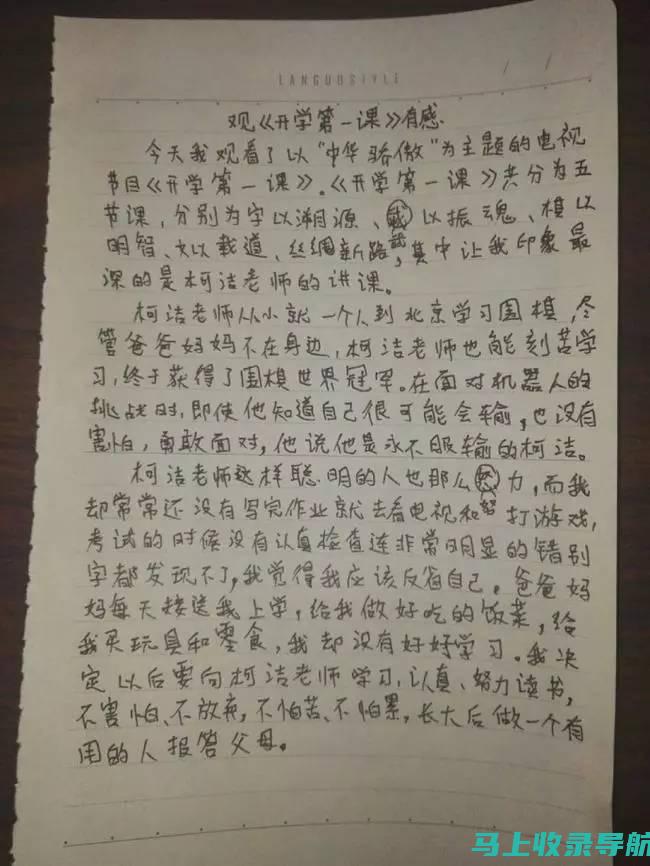 LANGUOSTYLE
观《开学第一课》有感.
今天我观看了以“中华骄傲”为主题的电视
节目《开学第一课》。《开学第一课》共分为五
节课，分别为字以溯源、武以振魂、棋以
明智、文以载道、丝绸新路，其中让我印象最
深的是柯洁老师的讲课。
柯洁老师从小就一个人到北京学习围棋，尽
管爸爸妈妈不在身边，柯洁老师也能刻苦学
习，终于获得了围棋世界冠军。在面对机器人的
挑战时，即使他知道自己很可能会输，也没有
害怕，勇敢面对，他说他是永不服输的柯洁。
柯洁老师这样聪明的人也那么努力，而我
却常常还没有写完作业就去看电视和打游戏，
考试的时候没有认真检查连非常明显的错别
字都发现不了，我觉得我应该反省自己。爸爸妈
妈每天接送我上学，给我做好吃的饭菜，给
我买玩具和零食，我却没有好好学习。我决
定以后要向柯洁老师学习，认真、努力读书，
不害怕、不放弃，不怕苦、不怕累，长大后做一个有
用的人报答父母。
马上收录导航